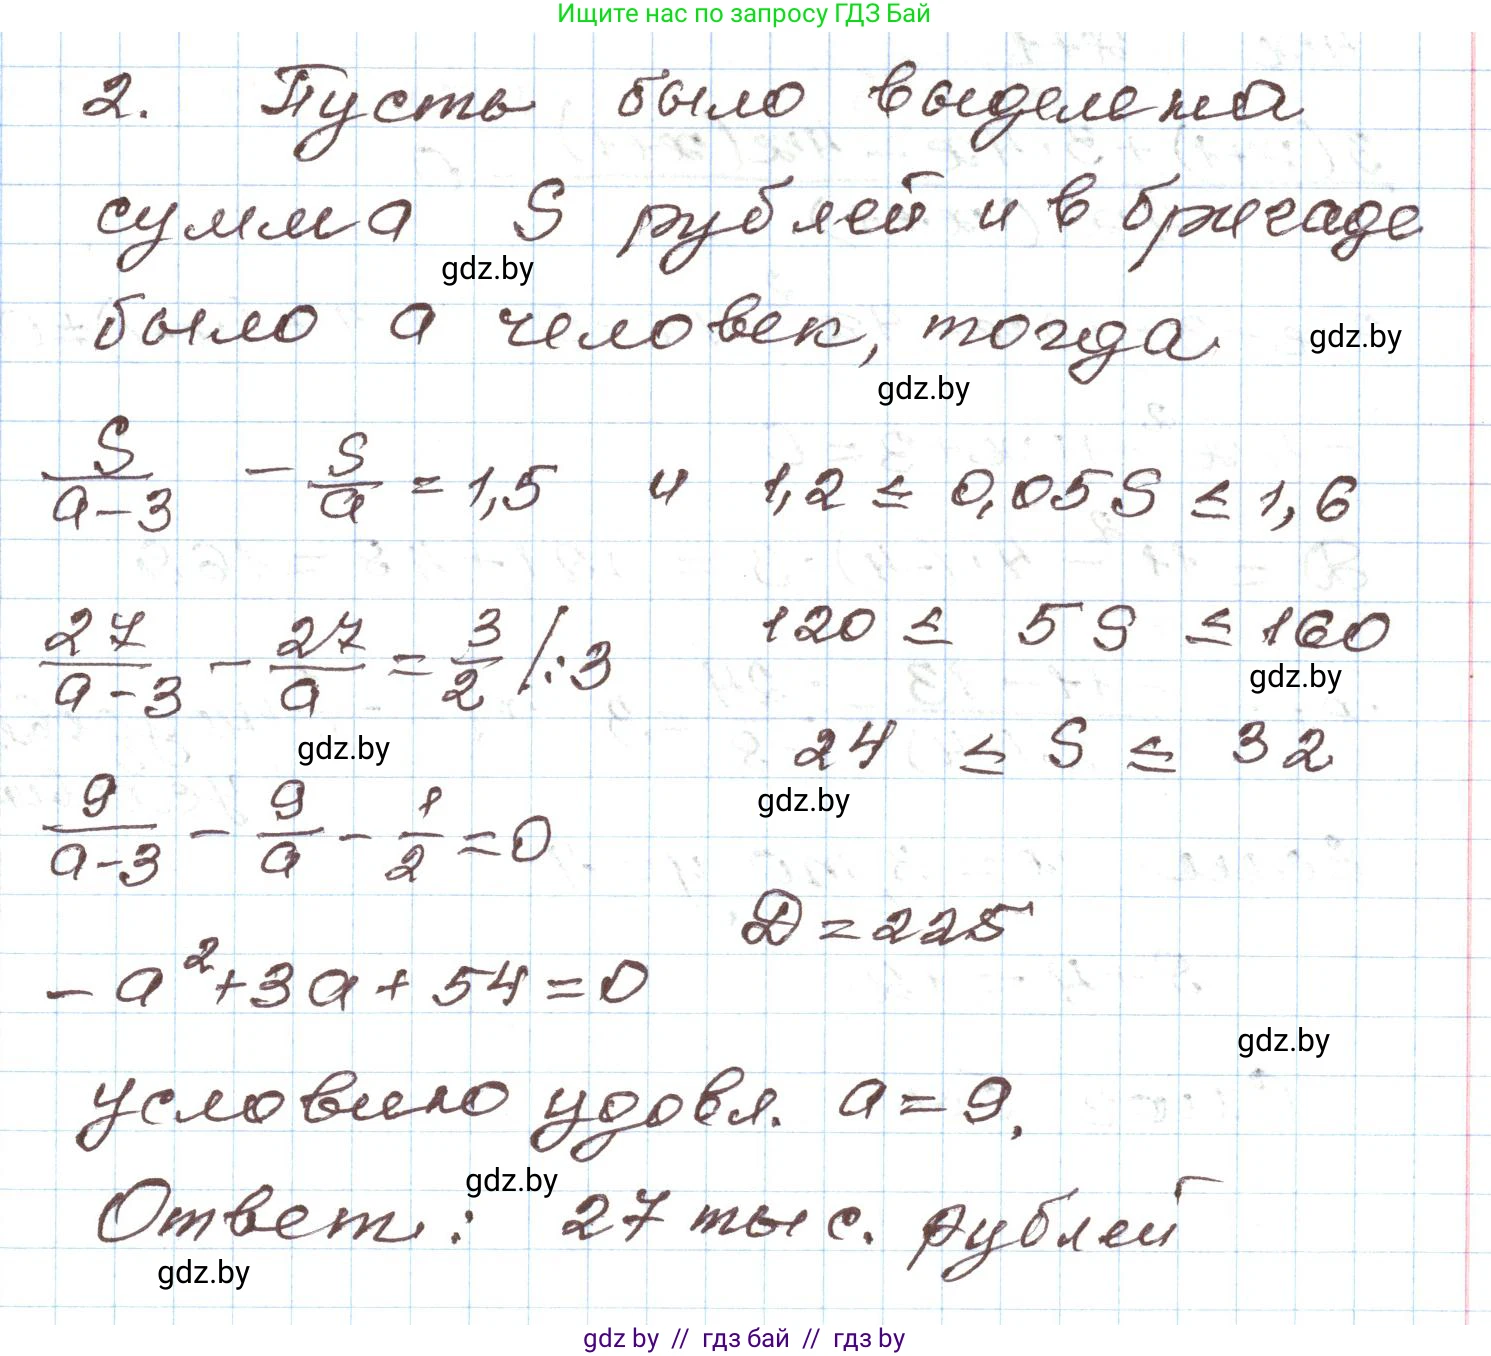 Ищите нас по запросу ГДЗ Бай
2. Пусть было выделена
сумма S рублей и в бригаде
gdz.by
было a человек, тогда
gdz.by
gdz.by
S/(a-3) - S/a = 1,5 и 1,2 ≤ 0,05S ≤ 1,6
27/(a-3) - 27/a = 3/2 /:3 120 ≤ 5S ≤ 160
gdz.by
gdz.by
24 ≤ S ≤ 32
gdz.by
9/(a-3) - 9/a - 1/2 = 0
D = 225
-a² + 3a + 54 = 0
gdz.by
условию удовл. a = 9.
gdz.by
Ответ: 27 тыс. рублей
gdz.by
gdz by // гдз бай // гдз by